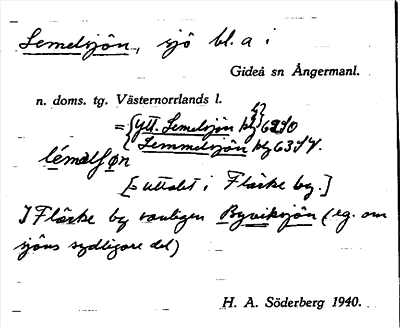 Lemelsjön, sjö bl. a i
Gideå sn Ångermanl.
n. doms. tg. Västernorrlands l.
= { Ytt. Lemelsjön kbl } 6290
{ Lemmelsjön kbl 6374.
lémalʃøn
[= uttalet i Fläske by.]
I Fläske by vanligen Byviksjön (eg. om
sjöns sydligare del)
H. A. Söderberg 1940.